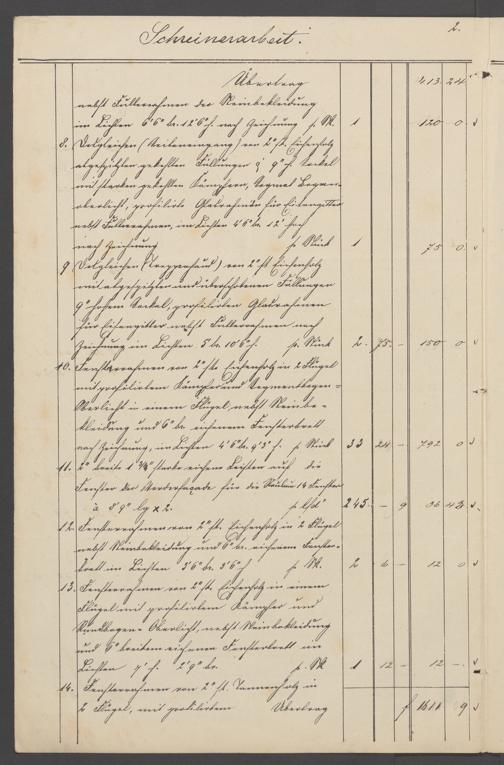 2.
Schreinerarbeit.
Übertrag 413 24
nebst Futterrahmen der Steinbekleidung
im Lichten 6'6" br. 12'6" h. nach Zeichnung p. St. 1 120 0
8. Desgleichen (Seiteneingang) von 2" st. Eichenholz
abgesetzten gekehlten Füllungen 9" h. Sockel
mit starken gekehlten Kämpfern, Segment Bogen-
oberlicht, profilirte Glasrahmen für Eisengitter
nebst Futterrahmen, im Lichten 4'6" br. 12' hoch
nach Zeichnung p. Stück 1 75 0
9. Desgleichen (Treppenhaus) von 2" st. Eichenholz
mit abgesetzten und überschobenen Füllungen
9" hohem Sockel, profilirten Glasrahmen
für Eisengitter nebst Futterrahmen nach
Zeichnung im Lichten 5' br. 10'6" h. p. Stück 2 75 – 150 0
10. Fensterrahmen von 2" st. Eichenholz in 2 Flügel
mit profilirtem Kämpfer und Segmentbogen-
Oberlicht in einem Flügel, nebst Steinbe-
kleidung und 6" br. eichenem Fensterbrett
nach Zeichnung, im Lichten 4'6" br. 9'3" h. p. Stück 33 24 – 792 0
11. 2" breite 1¾" starke eichene Leisten auf die
Fenster der Vorderfaçade für die 14 Fenster
à 8'9" lg x 2. 245 – 9 36 43
12. Fensterrahmen von 2" st. Eichenholz in 2 Flügel
nebst Steinbekleidung und 6" br. eichenem Fenster-
brett im Lichten 3'6" br. 3'6" h p. St. 2 6 – 12 0
13. Fensterrahmen von 2" st. Eichenholz in einem
Flügel mit profilirtem Kämpfer und
Rundbogene Oberlicht, nebst Steinbekleidung
und 6" breitem eichenem Fensterbrett im
Lichten 7' h. 2'9" br. p. St. 1 12 – 12 –
14. Fensterrahmen von 2" st. Tannenholz in
2 Flügel, mit profilirtem Übertrag f 1611 9